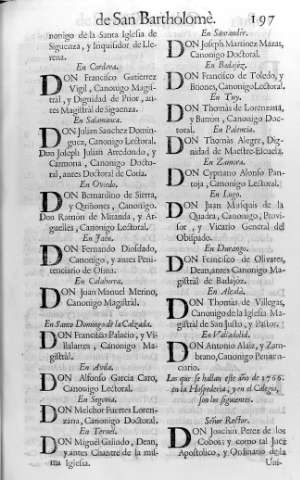 de San Bartholomè. 197
nonigo de la Santa Iglesia de
Siguenza, y Inquisidor de Lle-
rena.
En Cordova.
DON Francisco Gutierrez
Vigil, Canonigo Magis-
tral, y Dignidad de Prior, an-
tes Magistral de Siguenza.
En Salamanca.
DON Julian Sanchez Domin-
guez, Canonigo Lectoral.
Don Joseph Julian Arredondo, y
Carmona, Canonigo Docto-
ral, antes Doctoral de Coria.
En Oviedo.
DON Bernardino de Sierra,
y Quiñones, Canonigo.
Don Ramon de Miranda, y Ar-
guelles, Canonigo Lectoral.
En Jaen.
DON Fernando Diosdado,
Canonigo, y antes Peni-
tenciario de Osma.
En Calahorra.
DON Juan Manuel Merino,
Canonigo Magistral.
En Santo Domingo de la Calzada.
DON Francisco Palacio, y Vi-
llabarren, Canonigo Ma-
gistral.
En Avila.
DON Alfonso Garcia Caro,
Canonigo Lectoral.
En Segovia.
DON Melchor Fuertes Loren-
zana, Canonigo Doctoral.
En Teruel.
DON Miguel Galindo, Dean,
y antes Chantre de la mis-
ma Iglesia.
En Santander.
DON Joseph Martinez Mazas,
Canonigo Doctoral.
En Badajoz.
DON Francisco de Toledo, y
Briones, Canonigo Lectoral.
En Tuy.
DON Thomás de Lorenzana,
y Butron, Canonigo Doc-
toral.
En Palencia.
DON Thomás Alegre, Dig-
nidad de Maestre-Escuela.
En Zamora.
DON Cypriano Alonso Pan-
toja, Canonigo Lectoral.
En Lugo.
DON Juan Marquis de la
Quadra, Canonigo, Provi-
sor, y Vicario General del
Obispado.
En Durango.
DON Francisco de Olivares,
Dean, antes Canonigo Ma-
gistral de Badajoz.
En Alcalá.
DON Thomás de Villegas,
Canonigo de la Iglesia Ma-
gistral de San Justo, y Pastor.
En Valladolid.
DON Antonio Malz, y Zam-
brano, Canonigo Peniten-
ciario.
Los que se hallan este año de 1766.
en la Hospederia, y en el Colegio,
son los siguientes.
Señor Rector.
DON Joachin Perez de los
Cobos: y como tal Juez
Apostolico, y Ordinario de la
Uni-